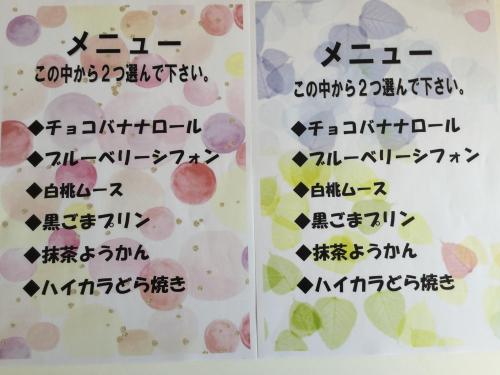 メニュー
この中から２つ選んで下さい。
◆チョコバナナロール
◆ブルーベリーシフォン
◆白桃ムース
◆黒ごまプリン
◆抹茶ようかん
◆ハイカラどら焼き
メニュー
この中から２つ選んで下さい。
◆チョコバナナロール
◆ブルーベリーシフォン
◆白桃ムース
◆黒ごまプリン
◆抹茶ようかん
◆ハイカラどら焼き